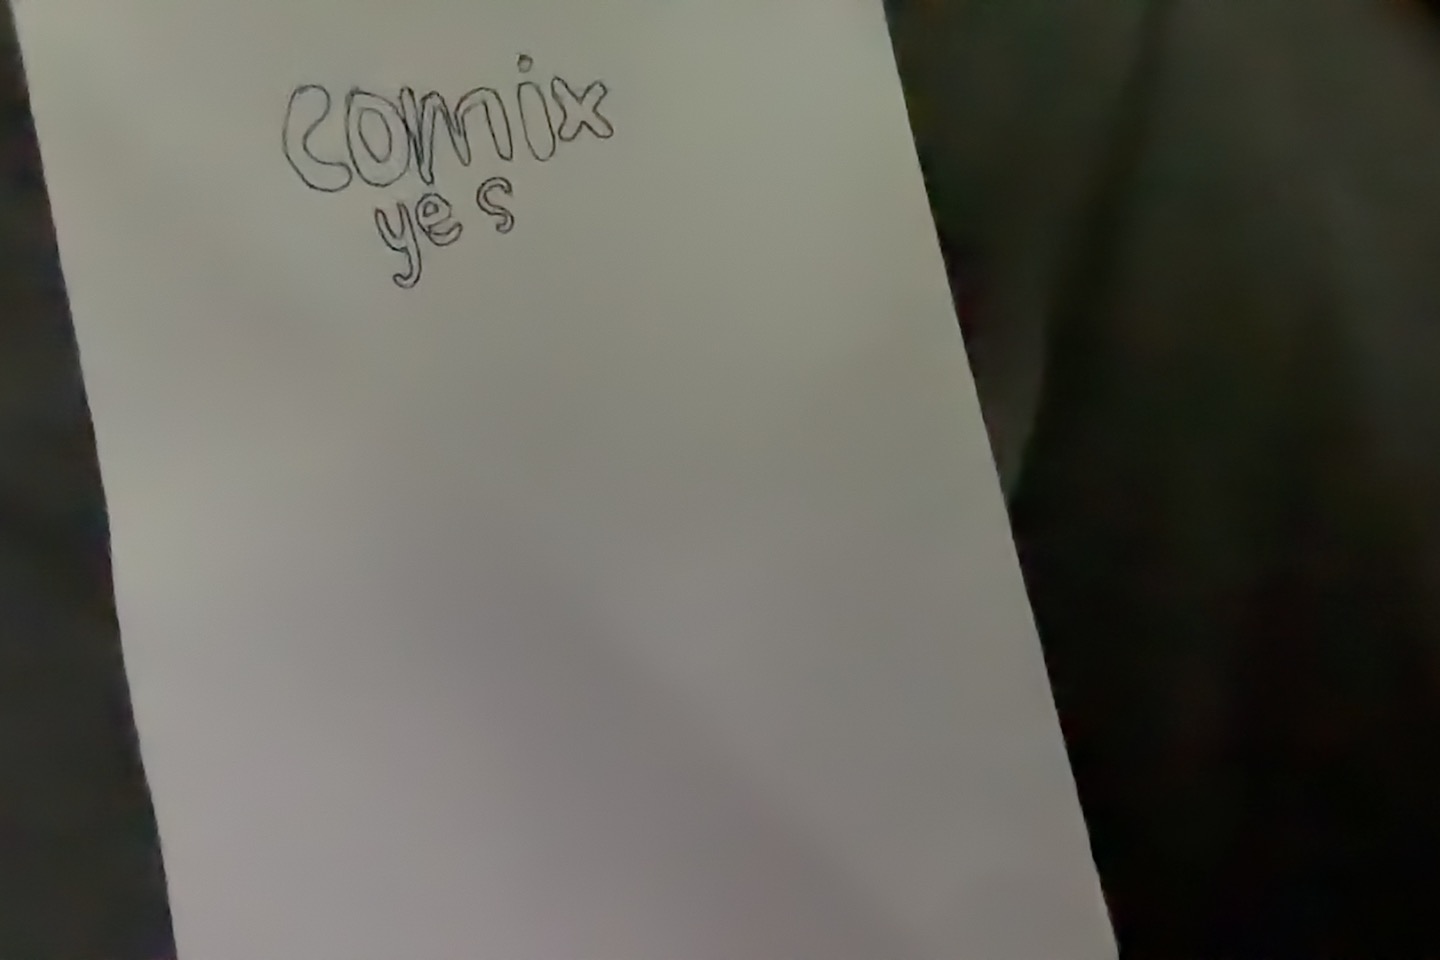 comix
yes